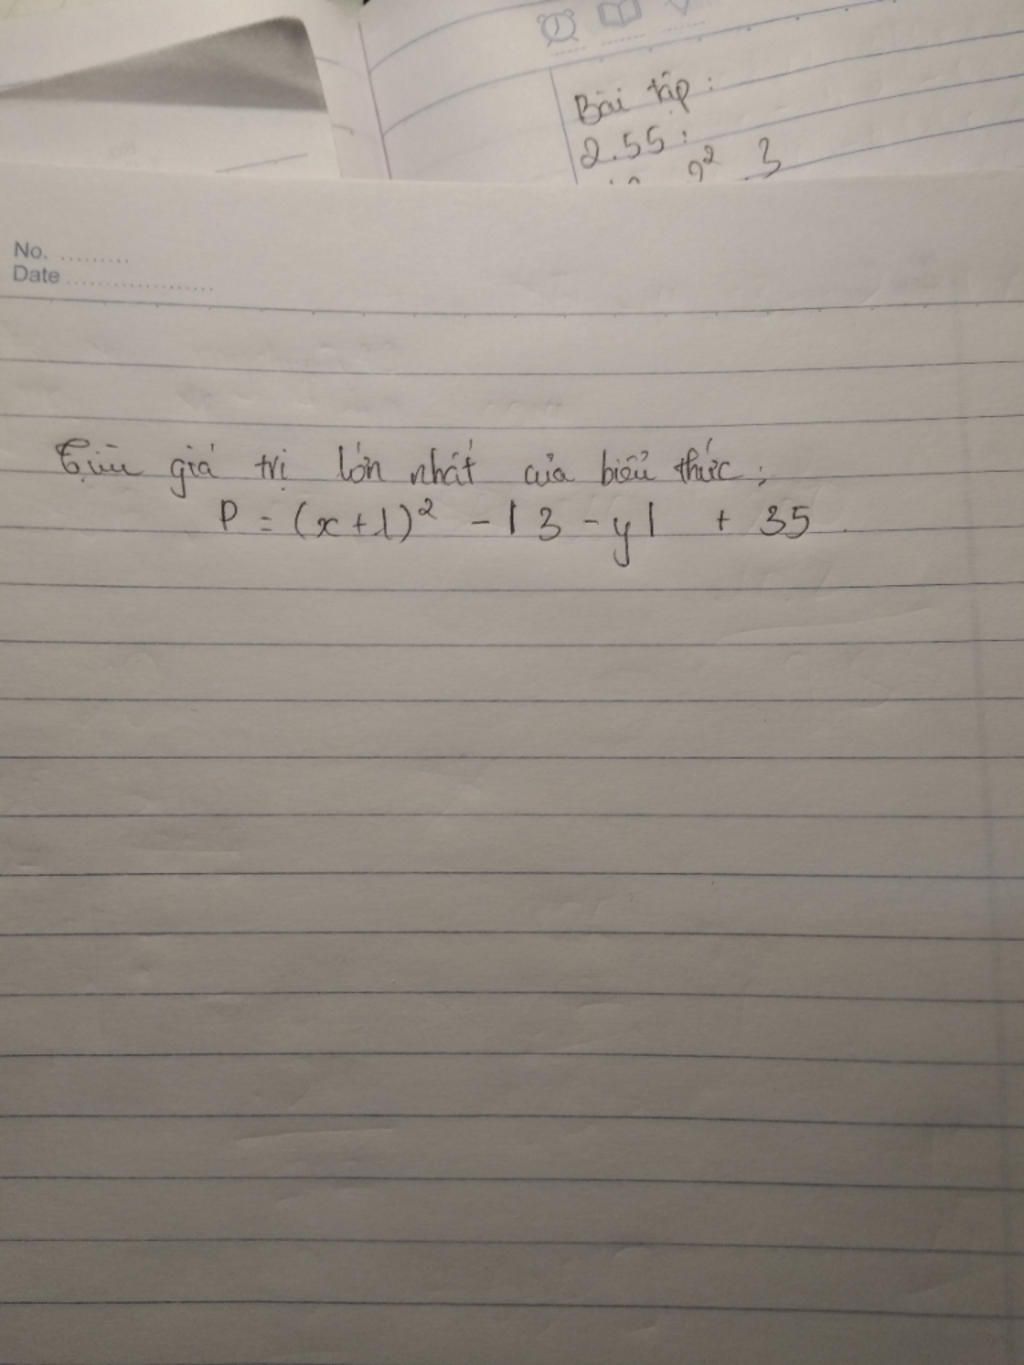 Bài tập :
2.55 :
2² 3
No. .........
Date ...................
Tìm giá trị lớn nhất của biểu thức;
P = (x+1)² - |3 - y| + 35